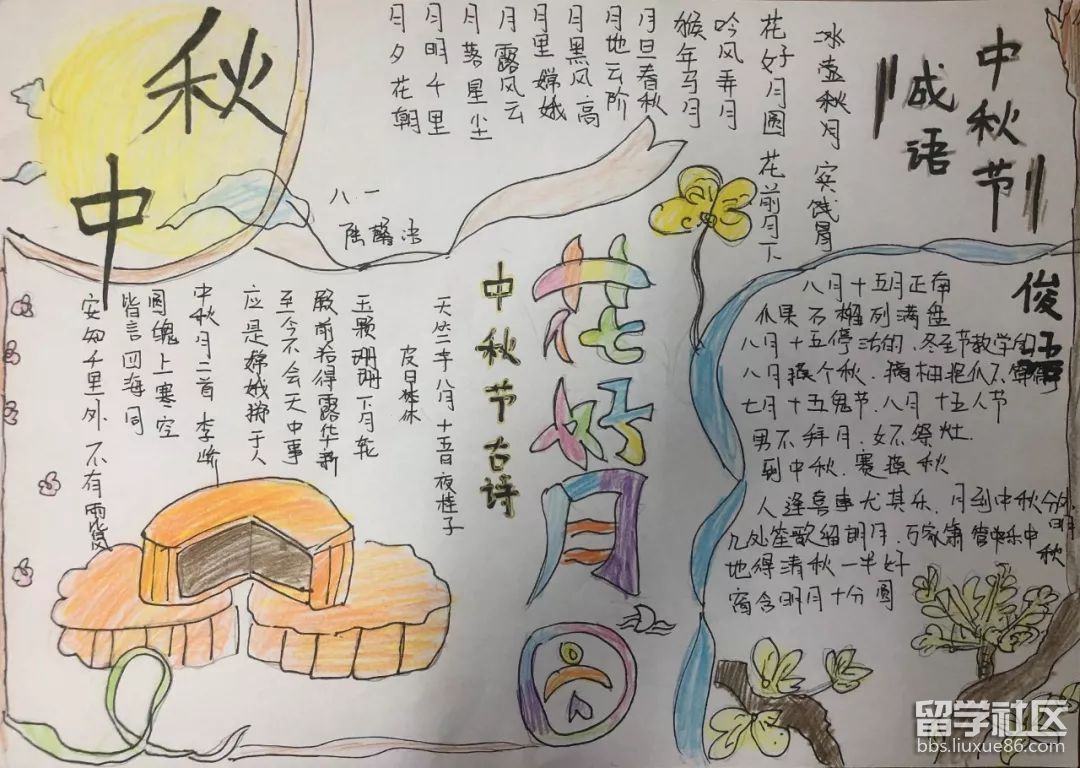 中秋
中秋节
成语
冰壶秋月 实饿月
花好月圆 花前月下
吟风弄月
猴年马月
月旦春秋
月地云阶
月黑风高
月里嫦娥
月露风云
月落星尘
月明千里
月夕花朝
八一
花好月圆
中秋节古诗
天竺年八月十五日夜桂子
皮日休
玉颗珊珊下月轮
殿前拾得露华新
至今不会天中事
应是嫦娥掷于人
中秋月二首 李峤
圆魄上寒空
皆言四海同
安知千里外 不有雨
俊语
八月十五月正南
瓜果石榴列满盘
八月十五停 冬至节教学
八月 个秋 摘柚 瓜不
七月十五鬼节 八月十五人节
男不拜月 女不祭灶
到中秋 赛 秋
人逢喜事尤其乐 月到中秋分外明
几处笙歌留朗月 万家箫管乐中秋
地得清秋一半好
窗含明月十分圆
留学社区
bbs.liuxue86.com